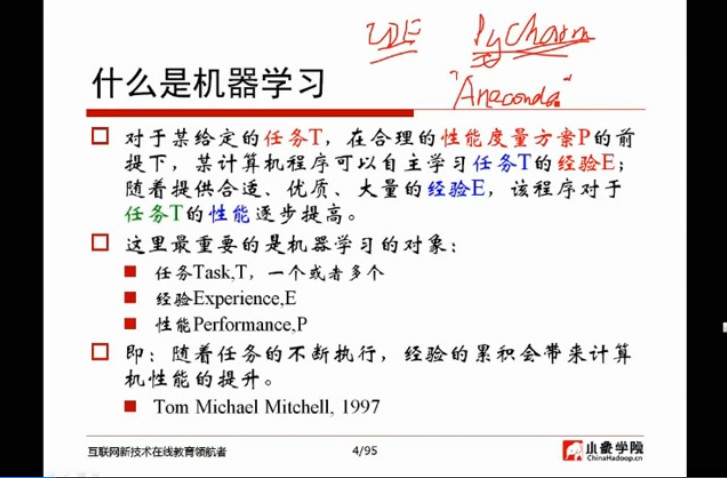 IDE PyCharm
"Anaconda"
什么是机器学习
对于某给定的任务T，在合理的性能度量方案P的前
提下，某计算机程序可以自主学习任务T的经验E；
随着提供合适、优质、大量的经验E，该程序对于
任务T的性能逐步提高。
这里最重要的是机器学习的对象：
任务Task,T，一个或者多个
经验Experience,E
性能Performance,P
即：随着任务的不断执行，经验的累积会带来计算
机性能的提升。
Tom Michael Mitchell, 1997
互联网新技术在线教育领航者
4/95
小象学院
ChinaHadoop.cn